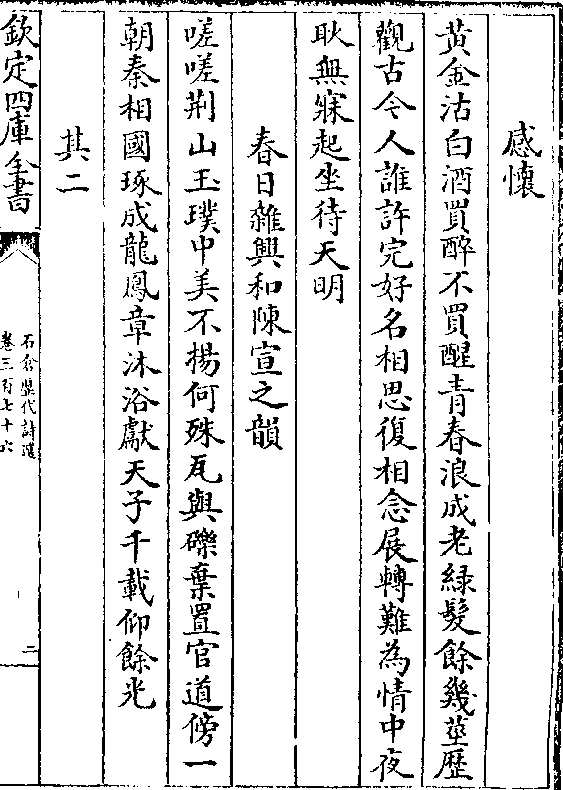 感懷
黃金沽白酒買醉不買醒青春浪成老緑髮餘幾莖歴
觀古今人誰許完好名相思復相念展轉難為情中夜
耿無寐起坐待天明
春日雜興和陳宣之韻
嗟嗟荆山玉璞中美不揚何殊瓦與礫棄置官道傍一
朝秦相國琢成龍鳳章沐浴獻天子千載仰餘光
其二
欽定四庫全書
石倉歴代詩選
卷三百七十六
二